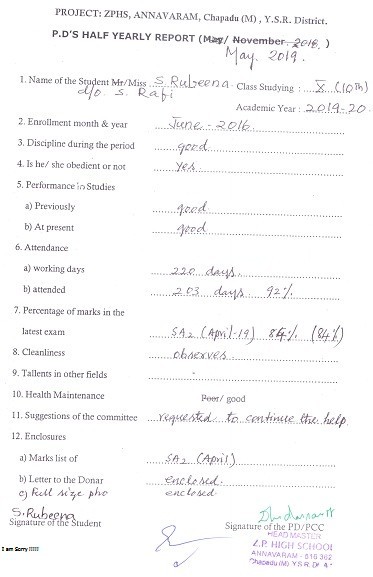 PROJECT: ZPHS, ANNAVARAM, Chapadu (M) , Y.S.R. District.
P.D'S HALF YEARLY REPORT (May/ November 2018. )
May. 2019.
1. Name of the Student Mr/Miss S. Rubeena. Class Studying : X (10th)
d/o S. Rafi
Academic Year : 2019-20.
2. Enrollment month & year June - 2016
3. Discipline during the period good
4. Is he/ she obedient or not yes
5. Performance in Studies
a) Previously good
b) At present good
6. Attendance
a) working days 220 days.
b) attended 203 days 92%
7. Percentage of marks in the
latest exam SA2 (April-19) 84%. (84%)
8. Cleanliness observes
9. Tallents in other fields -
10. Health Maintenance Poor/ good
11. Suggestions of the committee requested to continue the help.
12. Enclosures
a) Marks list of SA2 (April)
b) Letter to the Donar enclosed.
c) Full size pho enclosed
S. Rubeena
Signature of the Student Signature of the PD/PCC
HEAD MASTER
Z.P. HIGH SCHOOL
ANNAVARAM - 516 362
Chapadu (M) Y S R. Dt
I am Sorry !!!!!